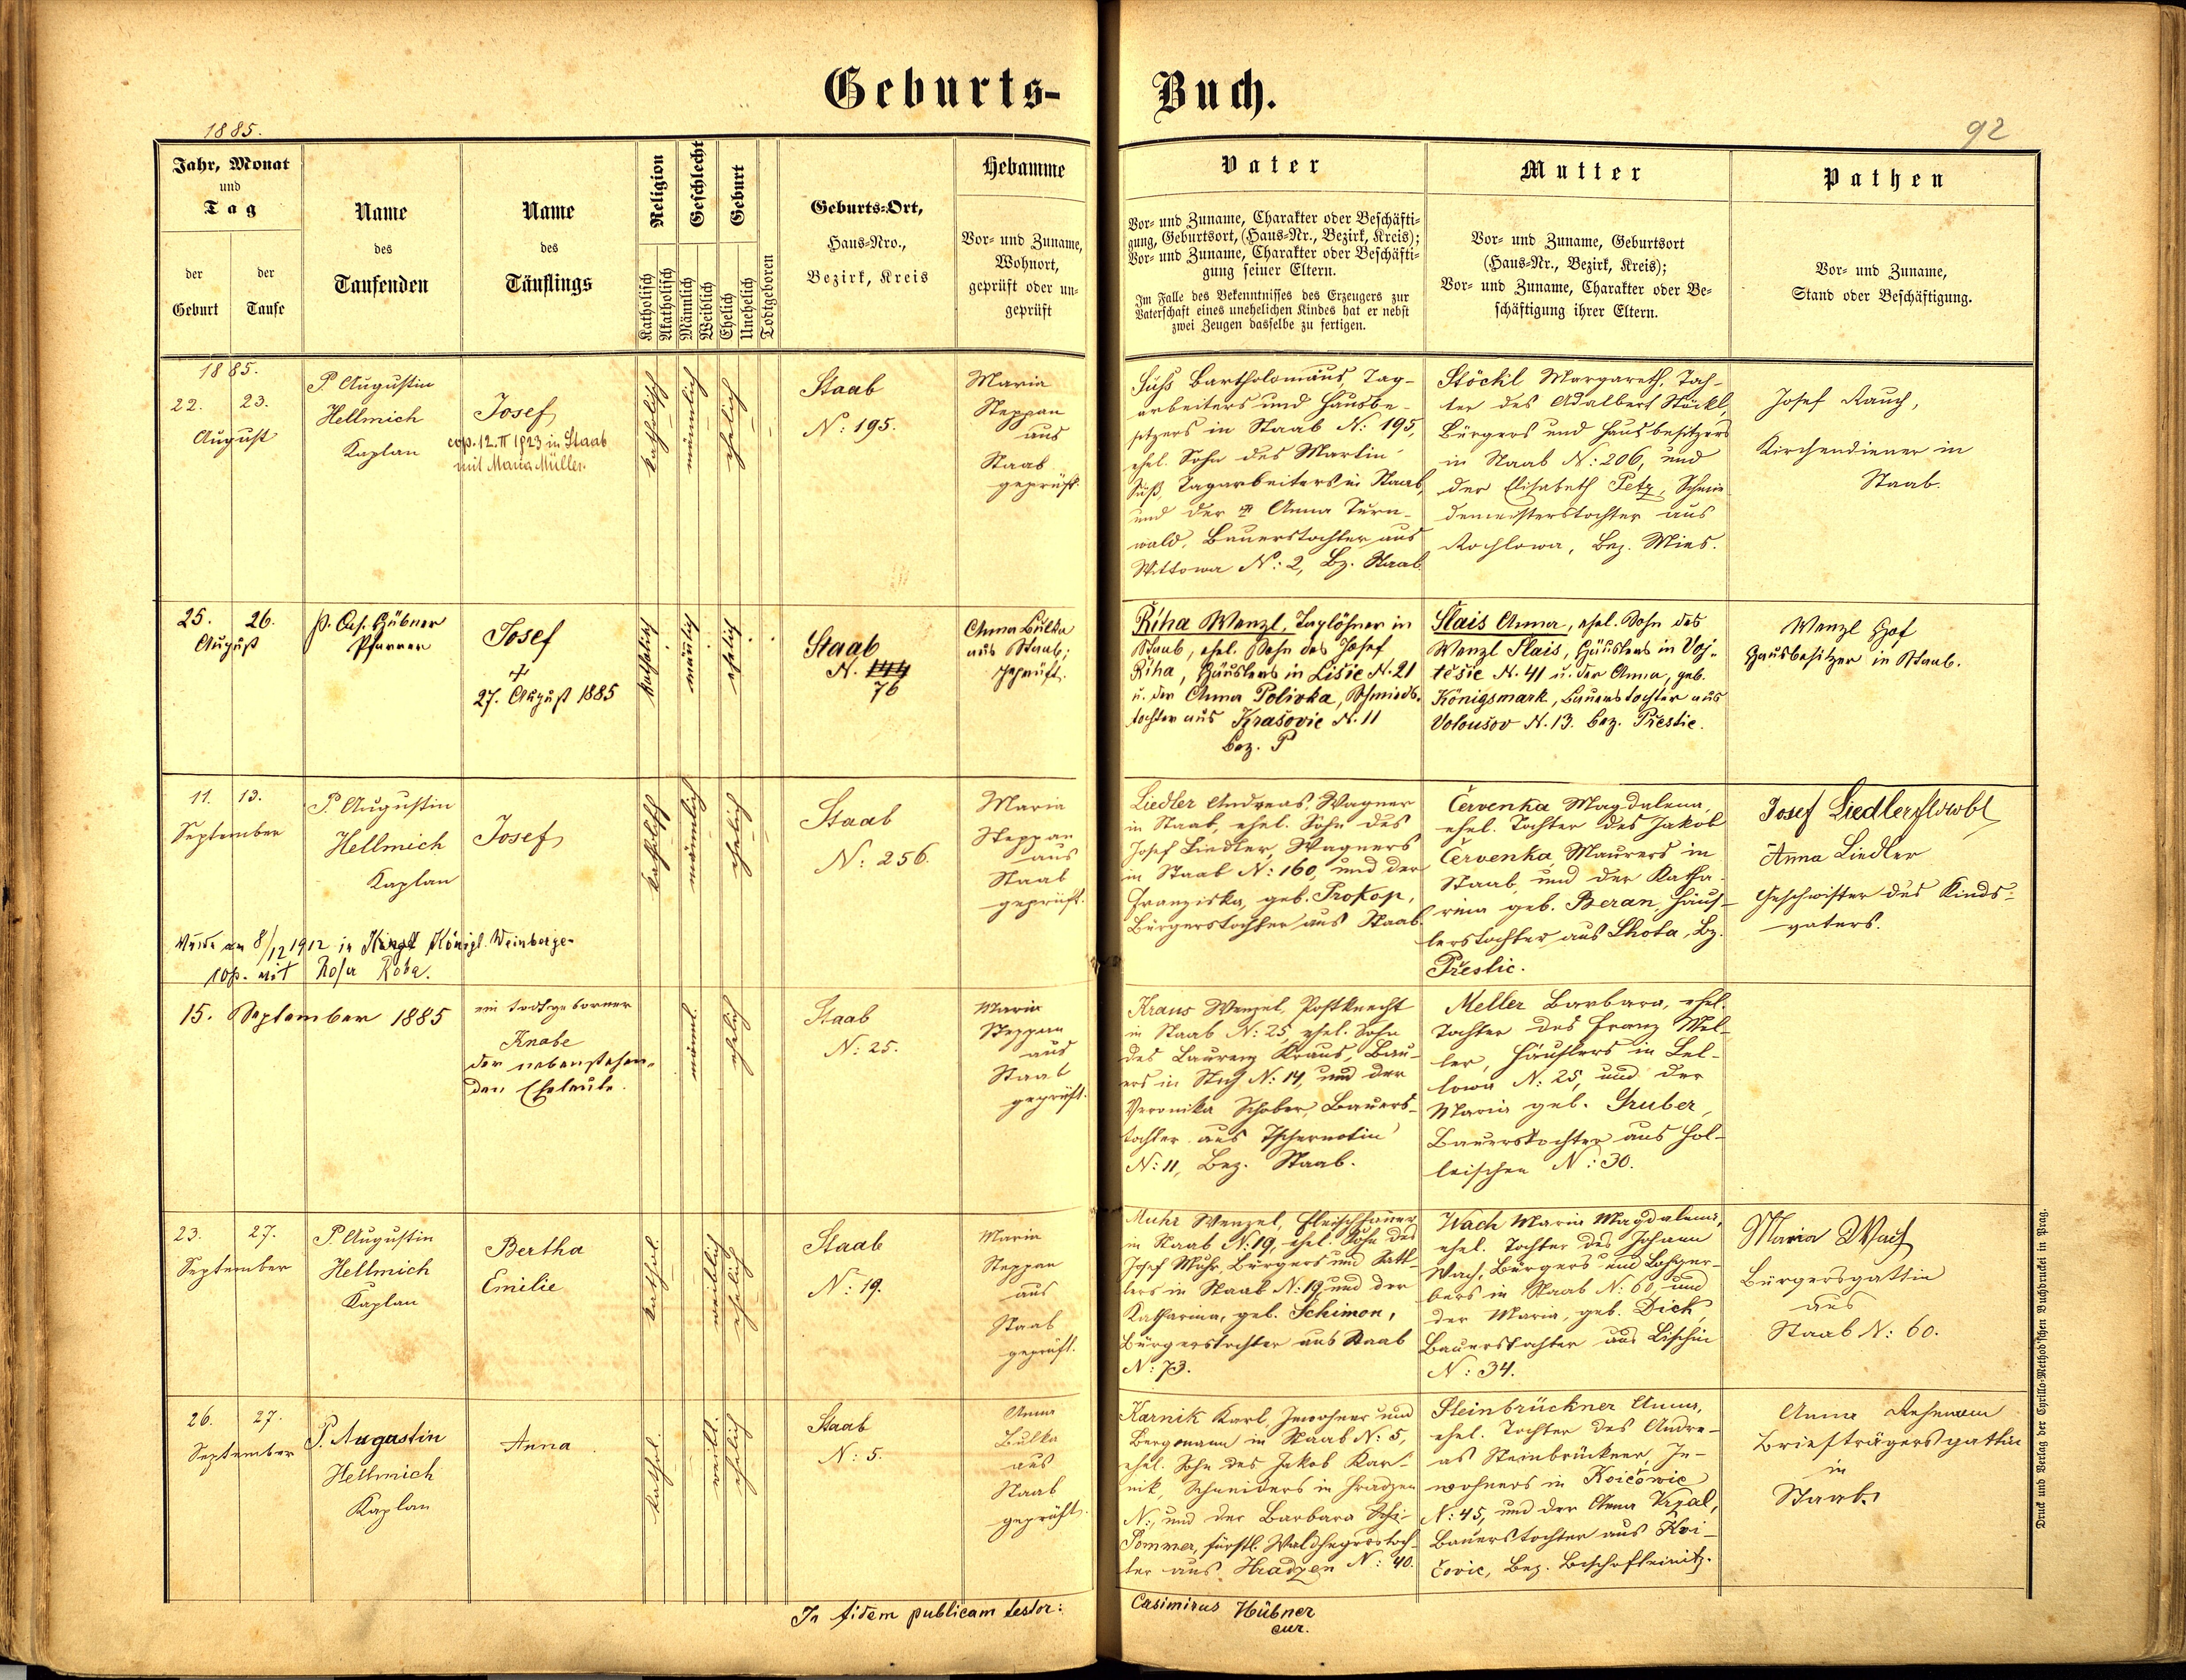 Geburts-
Buch.
1885.
92
Jahr, Monat
und
Tag
der
Geburt
der
Taufe
Name
des
Taufenden
Name
des
Täuflings
Religion
Katholisch
Akatholisch
Geschlecht
Männlich
Weiblich
Geburt
Ehelich
Unehelich
Todtgeboren
Geburts-Ort,
Haus-Nro.,
Bezirk, Kreis
Hebamme
Vor- und Zuname,
Wohnort,
geprüft oder un-
geprüft
Vater
Vor- und Zuname, Charakter oder Beschäfti-
gung, Geburtsort, (Haus-Nr., Bezirk, Kreis);
Vor- und Zuname, Charakter oder Beschäfti-
gung seiner Eltern.
Im Falle des Bekenntnisses des Erzeugers zur
Vaterschaft eines unehelichen Kindes hat er nebst
zwei Zeugen dasselbe zu fertigen.
Mutter
Vor- und Zuname, Geburtsort
(Haus-Nr., Bezirk, Kreis);
Vor- und Zuname, Charakter oder Be-
schäftigung ihrer Eltern.
Pathen
Vor- und Zuname,
Stand oder Beschäftigung.
1885.
22. 23.
August
P. Augustin
Hellmich
Kaplan
Josef
cop. 12. II 1923 in Staab
mit Maria Müller.
katholisch
männlich
ehelich
Staab
N: 195.
Maria
Steppan
aus
Staab
geprüft.
Süß Bartholomäus, Tag-
arbeiters und Hausbe-
sitzers in Staab N: 195,
ehel. Sohn des Martin
Süß, Tagarbeiters in Staab,
und der Anna Turn-
wald, Bauerstochter aus
Wittowa N: 2, Bz. Staab
Stöckl Margareth, Toch-
ter des Adalbert Stöckl,
Bürgers und Hausbesitzers
in Staab N: 206, und
der Elisabeth Petz, Schmie-
demeisterstochter aus
Rochlowa, Bez. Mies.
Josef Rauch,
Kirchendiener in
Staab.
25. 26.
August
P. Cas. Hübner
Pfarrer
Josef
+
27. August 1885
katholisch
männlich
ehelich
Staab
N.
76
Anna Bulka
aus Staab;
geprüft.
Řiha Wenzl, Taglöhner in
Staab, ehel. Sohn des Josef
Řiha, Häuslers in Lišic N. 21
u. der Anna Polivka, Schmieds-
tochter aus Krašovic N. 11
Bez. P
Slais Anna, ehel. Sohn des
Wenzl Slais, Häuslers in Voj-
těšic N. 41 u. der Anna, geb.
Königsmark, Bauerstochter aus
N. 13. bez. Přestic.
Wenzl Hof
Hausbesitzer in Staab.
11. 13.
September
P. Augustin
Hellmich
Kaplan
Josef
katholisch
männlich
ehelich
Staab
N: 256.
Maria
Steppan
aus
Staab
geprüft.
Wurde am 8/12 1912 in Königl. Weinberge-
cop. mit Rosa
Liedler Andreas, Wagner
in Staab, ehel. Sohn des
Josef Liedler, Wagners
in Staab N: 160, und der
Franziska, geb. Prokop,
Bürgerstochter aus Staab.
Červenka Magdalena,
ehel. Tochter des Jakob
Červenka, Maurers in
Staab, und der Katha-
rina geb. Beran, Häus-
lerstochter aus Lhota, Bz.
Přestic.
Josef Liedler
Anna Liedler
Geschwister des Kinds-
vaters.
15. September 1885
ein todtgeborner
Knabe
der nebenstehen-
den Eheleute.
männl.
ehelich
Staab
N: 25.
Maria
Steppan
aus
Staab
geprüft.
Kraus Wenzel, Postknecht
in Staab N: 25, ehel. Sohn
des Laurenz Kraus, Bau-
ers in Stich N: 14, und der
Veronika Schober, Bauers-
tochter aus Tschernotin
N: 11, Bez. Staab.
Meller Barbara, ehel.
Tochter des Franz Mel-
ler, Häuslers in Lel-
lowa N: 25, und der
Maria geb. Gruber,
Bauerstochter aus Hol-
leischen N: 30.
23. 27.
September
P. Augustin
Hellmich
Kaplan
Bertha
Emilie
kathol.
weiblich
ehelich
Staab
N: 19.
Maria
Steppan
aus
Staab
geprüft.
Muhr Wenzel, Fleischhauer
in Staab N: 19, ehel. Sohn des
Josef Muhr, Bürgers und Satt-
lers in Staab N: 19, und der
Katharina, geb. Schimon,
Bürgerstochter aus Staab
N: 73.
Wach Maria Magdalena,
ehel. Tochter des Johann
Wach, Bürgers und Lohger-
bers in Staab N: 60, und
der Maria, geb. Dick,
Bauerstochter aus Lischin
N: 34.
Maria Wach
Bürgersgattin
aus
Staab N: 60.
26. 27.
September
P. Augustin
Hellmich
Kaplan
Anna
kathol.
weibl.
ehelich
Staab
N: 5.
Anna
Bulka
aus
Staab
geprüft.
Karnik Karl, Inwohner und
Bergmann in Staab N: 5,
ehel. Sohn des Jakob Kar-
nik, Schneiders in Hradzen
N:, und der Barbara
Pommer, fürstl. Waldhegerstoch-
ter aus Hradzen N: 40.
Steinbrückner Anna,
ehel. Tochter des Andre-
as Steinbrückner, In-
wohners in Kvičowic
N: 45, und der Anna
Bauerstochter aus Kvi-
čovic, Bez. Bischofteinitz.
Anna
Briefträgersgattin
in
Staab.
In fidem publicam testor:
Casimirus Hübner
cur.
Druck und Verlag der Cyrillo-Method'schen Buchdruckei in Prag.